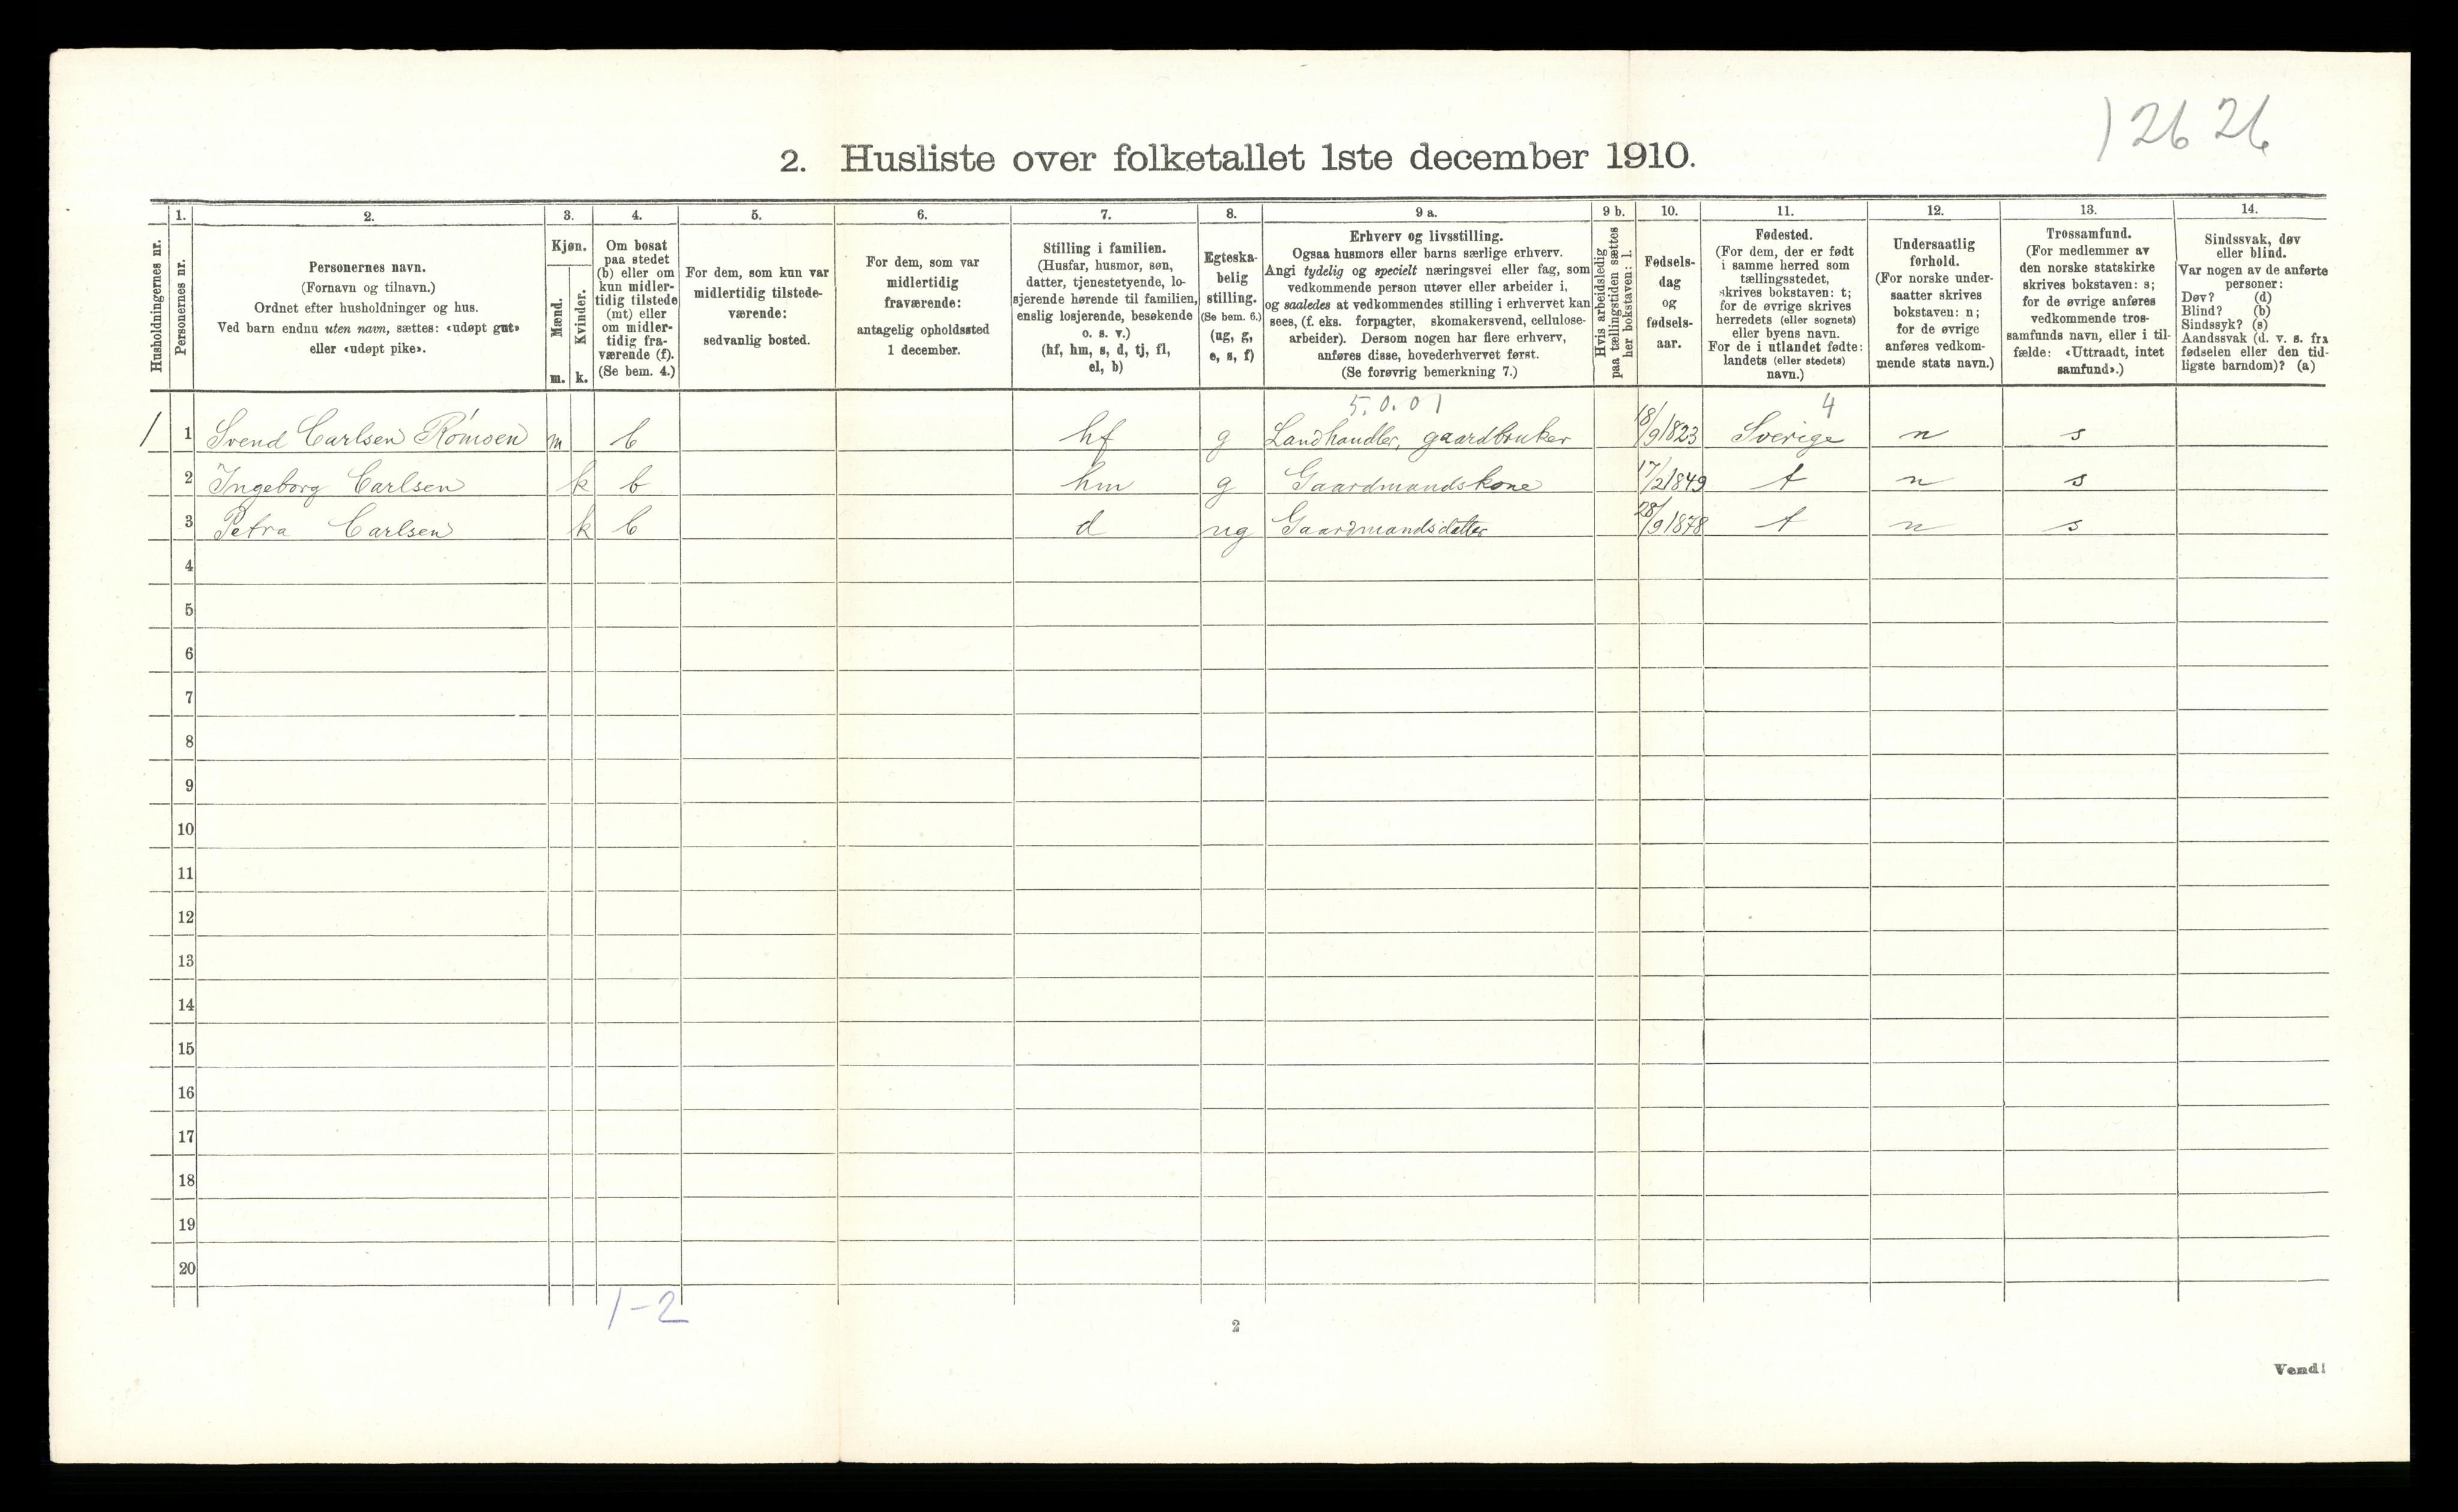 ) 26 26
2. Husliste over folketallet 1ste december 1910.
1. 2. 3. 4. 5. 6. 7. 8. 9 a. 9 b. 10. 11. 12. 13. 14.
Husholdningernes nr.
Personernes nr.
Personernes navn.
(Fornavn og tilnavn.)
Ordnet efter husholdninger og hus.
Ved barn endnu uten navn, sættes: «udøpt gut»
eller «udøpt pike».
Kjøn.
Mænd.
m.
Kvinder.
k.
Om bosat
paa stedet
(b) eller om
kun midler-
tidig tilstede
(mt) eller
om midler-
tidig fra-
værende (f).
(Se bem. 4.)
For dem, som kun var
midlertidig tilstede-
værende:
sedvanlig bosted.
For dem, som var
midlertidig
fraværende:
antagelig opholdssted
1 december.
Stilling i familien.
(Husfar, husmor, søn,
datter, tjenestetyende, lo-
sjerende hørende til familien,
enslig losjerende, besøkende
o. s. v.)
(hf, hm, s, d, tj, fl,
el, b)
Egteska-
belig
stilling.
(Se bem. 6.)
(ug, g,
e, s, f)
Erhverv og livsstilling.
Ogsaa husmors eller barns særlige erhverv.
Angi tydelig og specielt næringsvei eller fag, som
vedkommende person utøver eller arbeider i,
og saaledes at vedkommendes stilling i erhvervet kan
sees, (f. eks. forpagter, skomakersvend, cellulose-
arbeider). Dersom nogen har flere erhverv,
anføres disse, hovederhvervet først.
(Se forøvrig bemerkning 7.)
Hvis arbeidsledig
paa tællingstiden sættes
her bokstaven: l.
Fødsels-
dag
og
fødsels-
aar.
Fødested.
(For dem, der er født
i samme herred som
tællingsstedet,
skrives bokstaven: t;
for de øvrige skrives
herredets (eller sognets)
eller byens navn.
For de i utlandet fødte:
landets (eller stedets)
navn.)
Undersaatlig
forhold.
(For norske under-
saatter skrives
bokstaven: n;
for de øvrige
anføres vedkom-
mende stats navn.)
Trossamfund.
(For medlemmer av
den norske statskirke
skrives bokstaven: s;
for de øvrige anføres
vedkommende tros-
samfunds navn, eller i til-
fælde: «Uttraadt, intet
samfund».)
Sindssvak, døv
eller blind.
Var nogen av de anførte
personer:
Døv? (d)
Blind? (b)
Sindssyk? (s)
Aandssvak (d. v. s. fra
fødselen eller den tid-
ligste barndom)? (a)
5.0.01 4
1 1 Svend Carlsen Rømoen m b hf g Landhandler, gaardbruker 18/9 1823 Sverige n s
2 Ingeborg Carlsen k b hm g Gaardmandskone 17/2 1849 t n s
3 Petra Carlsen k b d ug Gaardmandsdatter 28/9 1878 t n s
4
5
6
7
8
9
10
11
12
13
14
15
16
17
18
19
20
1-2
2
Vend!